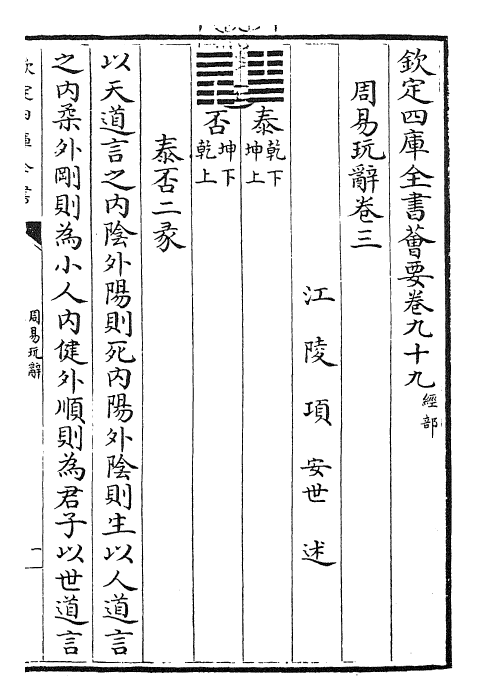 欽定四庫全書薈要卷九十九 經部
周易玩辭卷三
江陵項安世述
泰 乾下 坤上
否 坤下 乾上
泰否二彖
以天道言之内陰外陽則死内陽外陰則生以人道言
之内柔外剛則為小人内健外順則為君子以世道言
周易玩辭